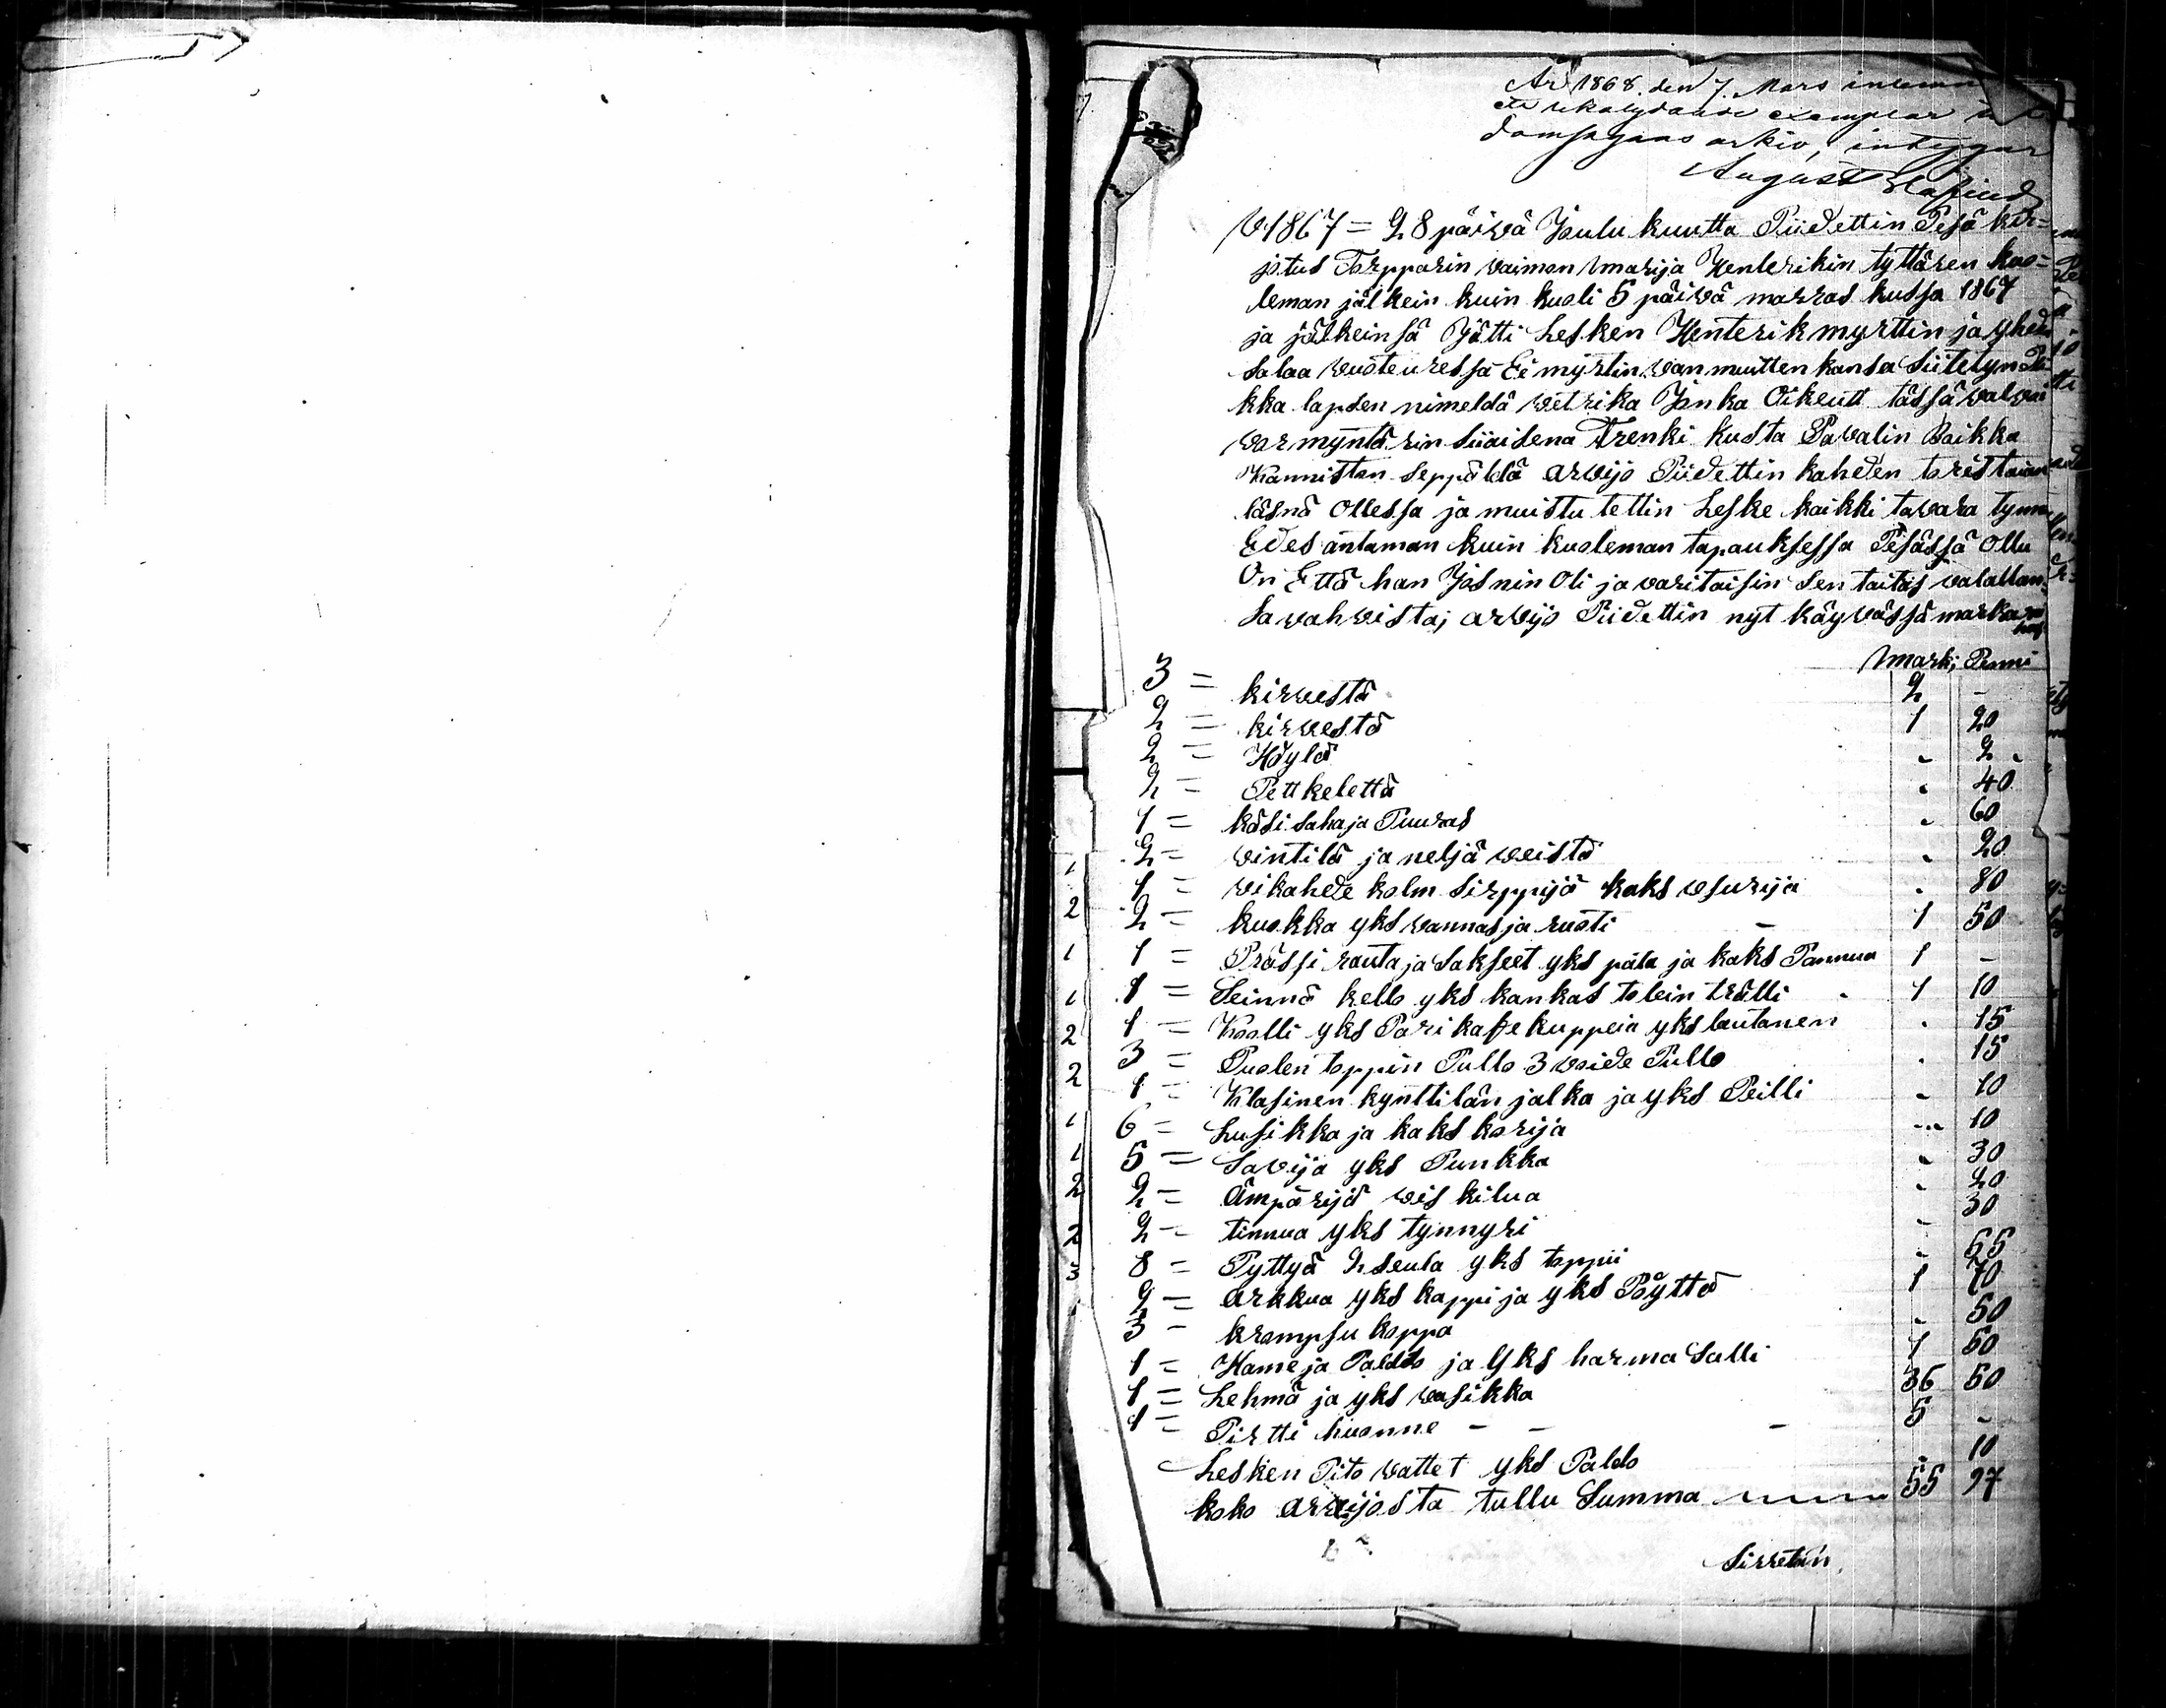 År 1868. den 7. Mars inlemn
ett likalydande exemplar
domsagans arkiv, intygar
August
W 1867 = 28 päivä Joulu kuutta Piidettin Pesä kir=
jotus Torpparin vaimon Marija Henlerikin tyttären kuo=
leman jälkein kuin kuoli 5 päivä marras kussa 1867
ja jälkeinsä Jätti Lesken Henterik myrttin ja yhen
Salaa vuoteuressa Ei myrtin van muitten kansa Siitetyn
kka lapsen nimeldä vetrika Jonka Oikeutt tässä valvoi
varmyntärin Siiaisena Trenki Kusta Pavalin Baikka
Kanniston Seppäldä arvijo Piidettin kaheden toristaian
läsnä Ollessa ja muistutettin Leske kaikki tavara tynni
Edes antaman kuin kuoleman tapauksessa Pesässä Ollu
On Että han Jos nin Oli ja varitaisin Sen taitas valallan
Sa vahvistaj arvijo Piidettin nyt käyvässä marka
Mark; Penni
3 = kirvestä 2 -
2 = kirvestä 1 20
2 = Höylä " 2 "
2 = Pettkelettä " 40
1 = käsi Saha ja Puuras " 60
2 = vintilä ja neljä veistä " 20
1 = vikahde kolm Sirppijä kaks vesurija " 80
2 = kuokka yks vannas ja rusti - 1 50
1 = Prässi rauta ja Sakseet yks pata ja kaks Pannua 1 -
1 = Seinnä kello yks kankas tolein trälli 1 10
1 = Koolli yks Pari kaffe kuppeia yks lautanen " 15
3 = Puolen toppin Pullo 3 voide Pullo " 15
1 = Klasinen kynttilän jalka ja yks Peilli " 10
6 = Lusikka ja kaks korija " 10
5 = Savija yks Punkka " 30
2 = Ämpärijä vis kilua " 20
2 = tinnua yks tynnyri " 30
8 = Pyttyä 2 seula yks toppii " 55
2 = arkkua yks kappi ja yks Pöyttä 1 70
3 = krampsu koppa " 50
1 = Hame ja Paldo ja Yks harma Salli 1 50
1 = Lehmä ja yks vasikka 36 50
1 = Pirtti huonne - - - 5 -
Lesken Pito vattet yks Paldo " 10
koko arvijosta tullu Summa 55 97
Sirretän,